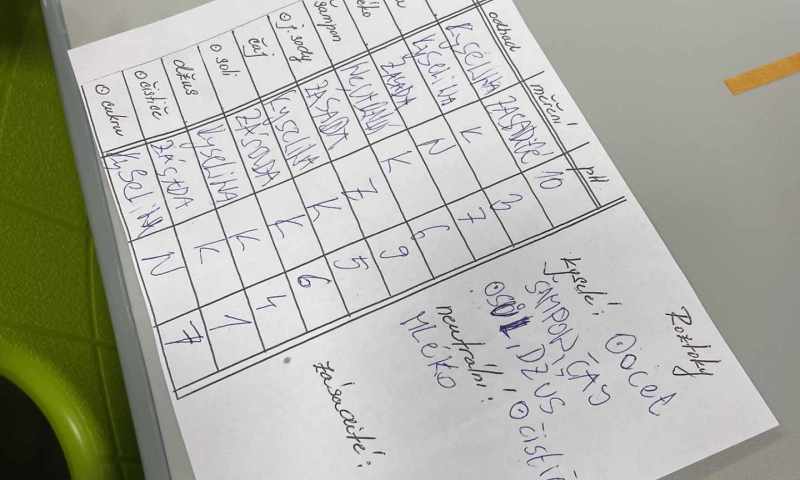 odhad měření pH
KYSELINA ZÁSADITÉ 10
KYSELINA K 3
ZÁSADA N 7
šampon K 6
⊙ j. sody ZÁSADA Z 9
čaj KYSELINA K 5
⊙ soli ZÁSADA K 6
džus KYSELINA K 4
⊙ čističe ZÁSADA K 1
⊙ cukru KYSELINA N 7
Roztoky
kyselé: ⊙ ocet
ŠAMPON, ČAJ
DŽUS
neutrální:
MLÉKO
zásadité: